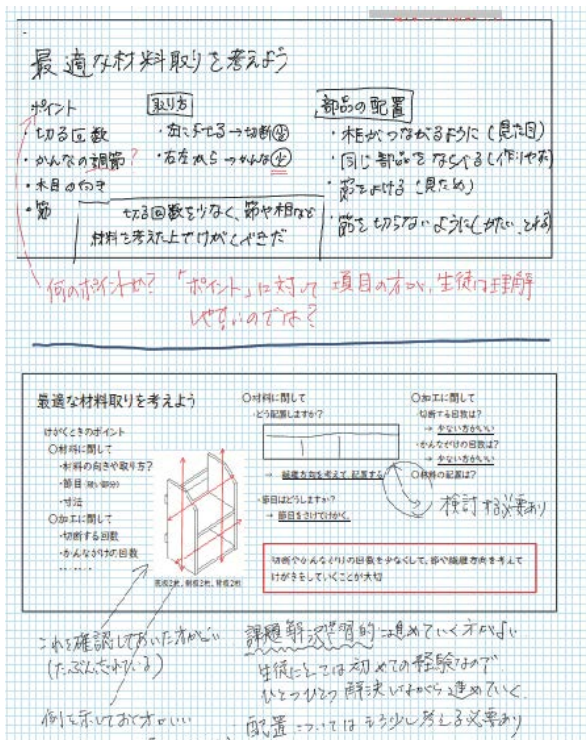 最適な材料取りを考えよう
ポイント
・切る回数
・かんなの調節?
・木目の向き
・節
取り方
・右によせる→切断
・右左から→かんな
切る回数を少なく、節や木目など
材料を考えた上でけがくべきだ
部品の配置
・木目がつながるように(見た目)
・同じ部品をならべる(作りやす
・節をよける(見ため)
・節を切らないように(かたい、とれる
何のポイントか? 「ポイント」に対して 項目の方が、生徒は理解
しやすいのでは?
最適な材料取りを考えよう
けがくときのポイント
〇材料に関して
・材料の向きや取り方?
・節目
・寸法
〇加工に関して
・切断する回数
・かんながけの回数
底板2枚、側板2枚、背板2枚
〇材料に関して
・どう配置しますか?
→ 繊維方向を考えて 配置する
・節目はどうしますか?
→ 節目をさけてけがく。
〇加工に関して
・切断する回数は?
→ 少ない方がいい
・かんながけの回数は?
→ 少ない方がいい
〇材料の配置は?
検討する必要あり
切断やかんながけの回数を少なくして、節や繊維方向を考えて
けがきをしていくことが大切
これを確認しておいた方がよい
(たぶん忘れている)
例を示しておく方がいい
課題解決学習的に進めていく方がよい
生徒にとっては初めての経験なので
ひとつひとつ解決しながら進めていく。
配置については もう少し考える必要あり